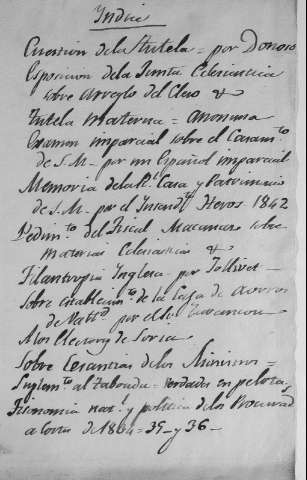 Indice
Cuestion de la Tutela = por Donoso
Esposicion de la Junta Eclesiastica
sobre arreglo del Clero &
Tutela Materna = anonima
Examen imparcial sobre el Casam.to
de S.M. por un Español imparcial
Memoria de la R.l Casa y Patrimonio
de S.M. por el Intend.te Heros 1842
Pedim.to del Fiscal sobre
materias Eclesiasticas &
Filantropia Inglesa = por Tollivet
Sobre establecim.to de la Caja de Aorros
de Vall.d por el
A los Electores de Soria
Sobre Cesantias de los Ministros =
al = verdades en pelota
Fisonomia nat.l y politica de los Procurad
a Cortes de 1834 = 35 = y 36 =